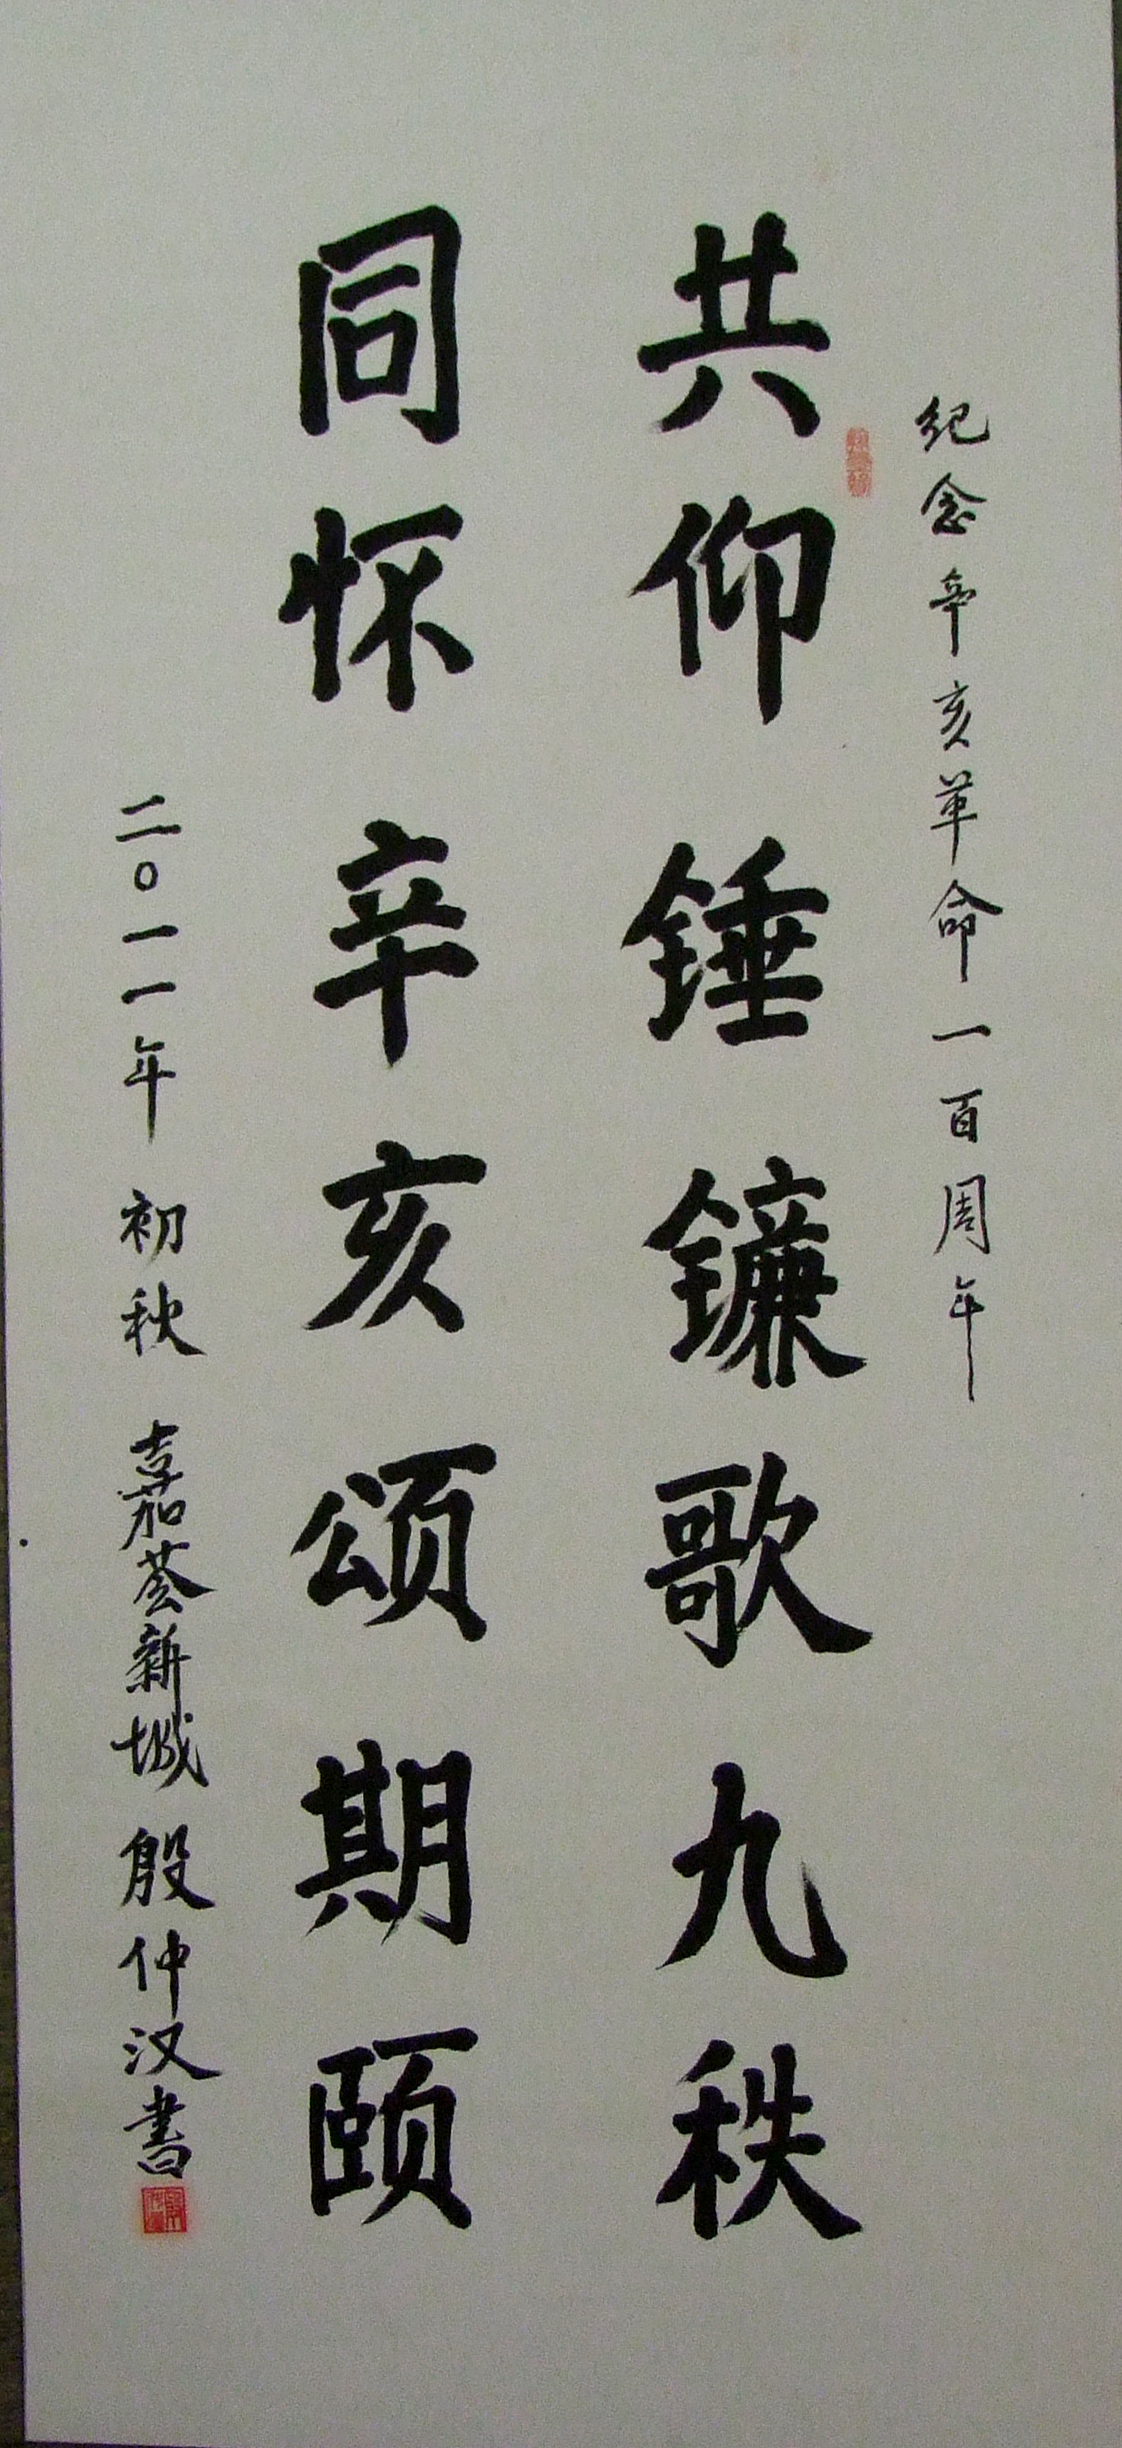 纪念辛亥革命一百周年
共仰锤镰歌九秩
同怀辛亥颂期颐
二〇一一年初秋 嘉荟新城 殷仲汉书